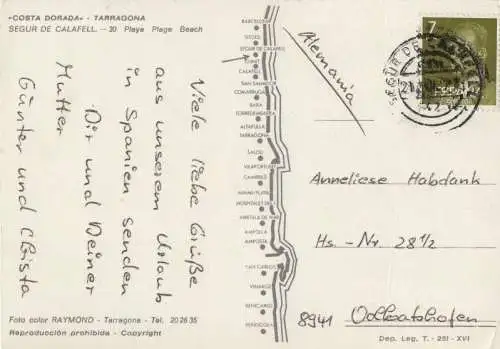 «COSTA DORADA» - TARRAGONA
SEGUR DE CALAFELL. - 20 Playa Plage Beach
Viele liebe Grüße
aus unserem Urlaub
in Spanien senden
Dir und Deiner
Mutter
Günter und Christa
BARCELONA
SITGES
SEGUR DE CALAFELL
CUNIT
CALAFELL
SAN SALVADOR
COMARRUGA
BARA
TORREDEMBARRA
ALTAFULLA
TARRAGONA
SALOU
VILAFORTUNY
CAMBRILS
MIAMI PLAYA
HOSPITALET
AMETLLA DE MAR
AMPOLLA
AMPOSTA
SAN CARLOS
VINAROZ
BENICARLO
PEÑISCOLA
Alemania
7
SEGUR DE CALAFELL
Anneliese Habdank
Hs.-Nr 28 1/2
8941 Volkratshofen
Foto color RAYMOND - Tarragona - Tel. 20 26 35
Reproducción prohibida - Copyright
Dep. Leg. T. - 251 - XVI